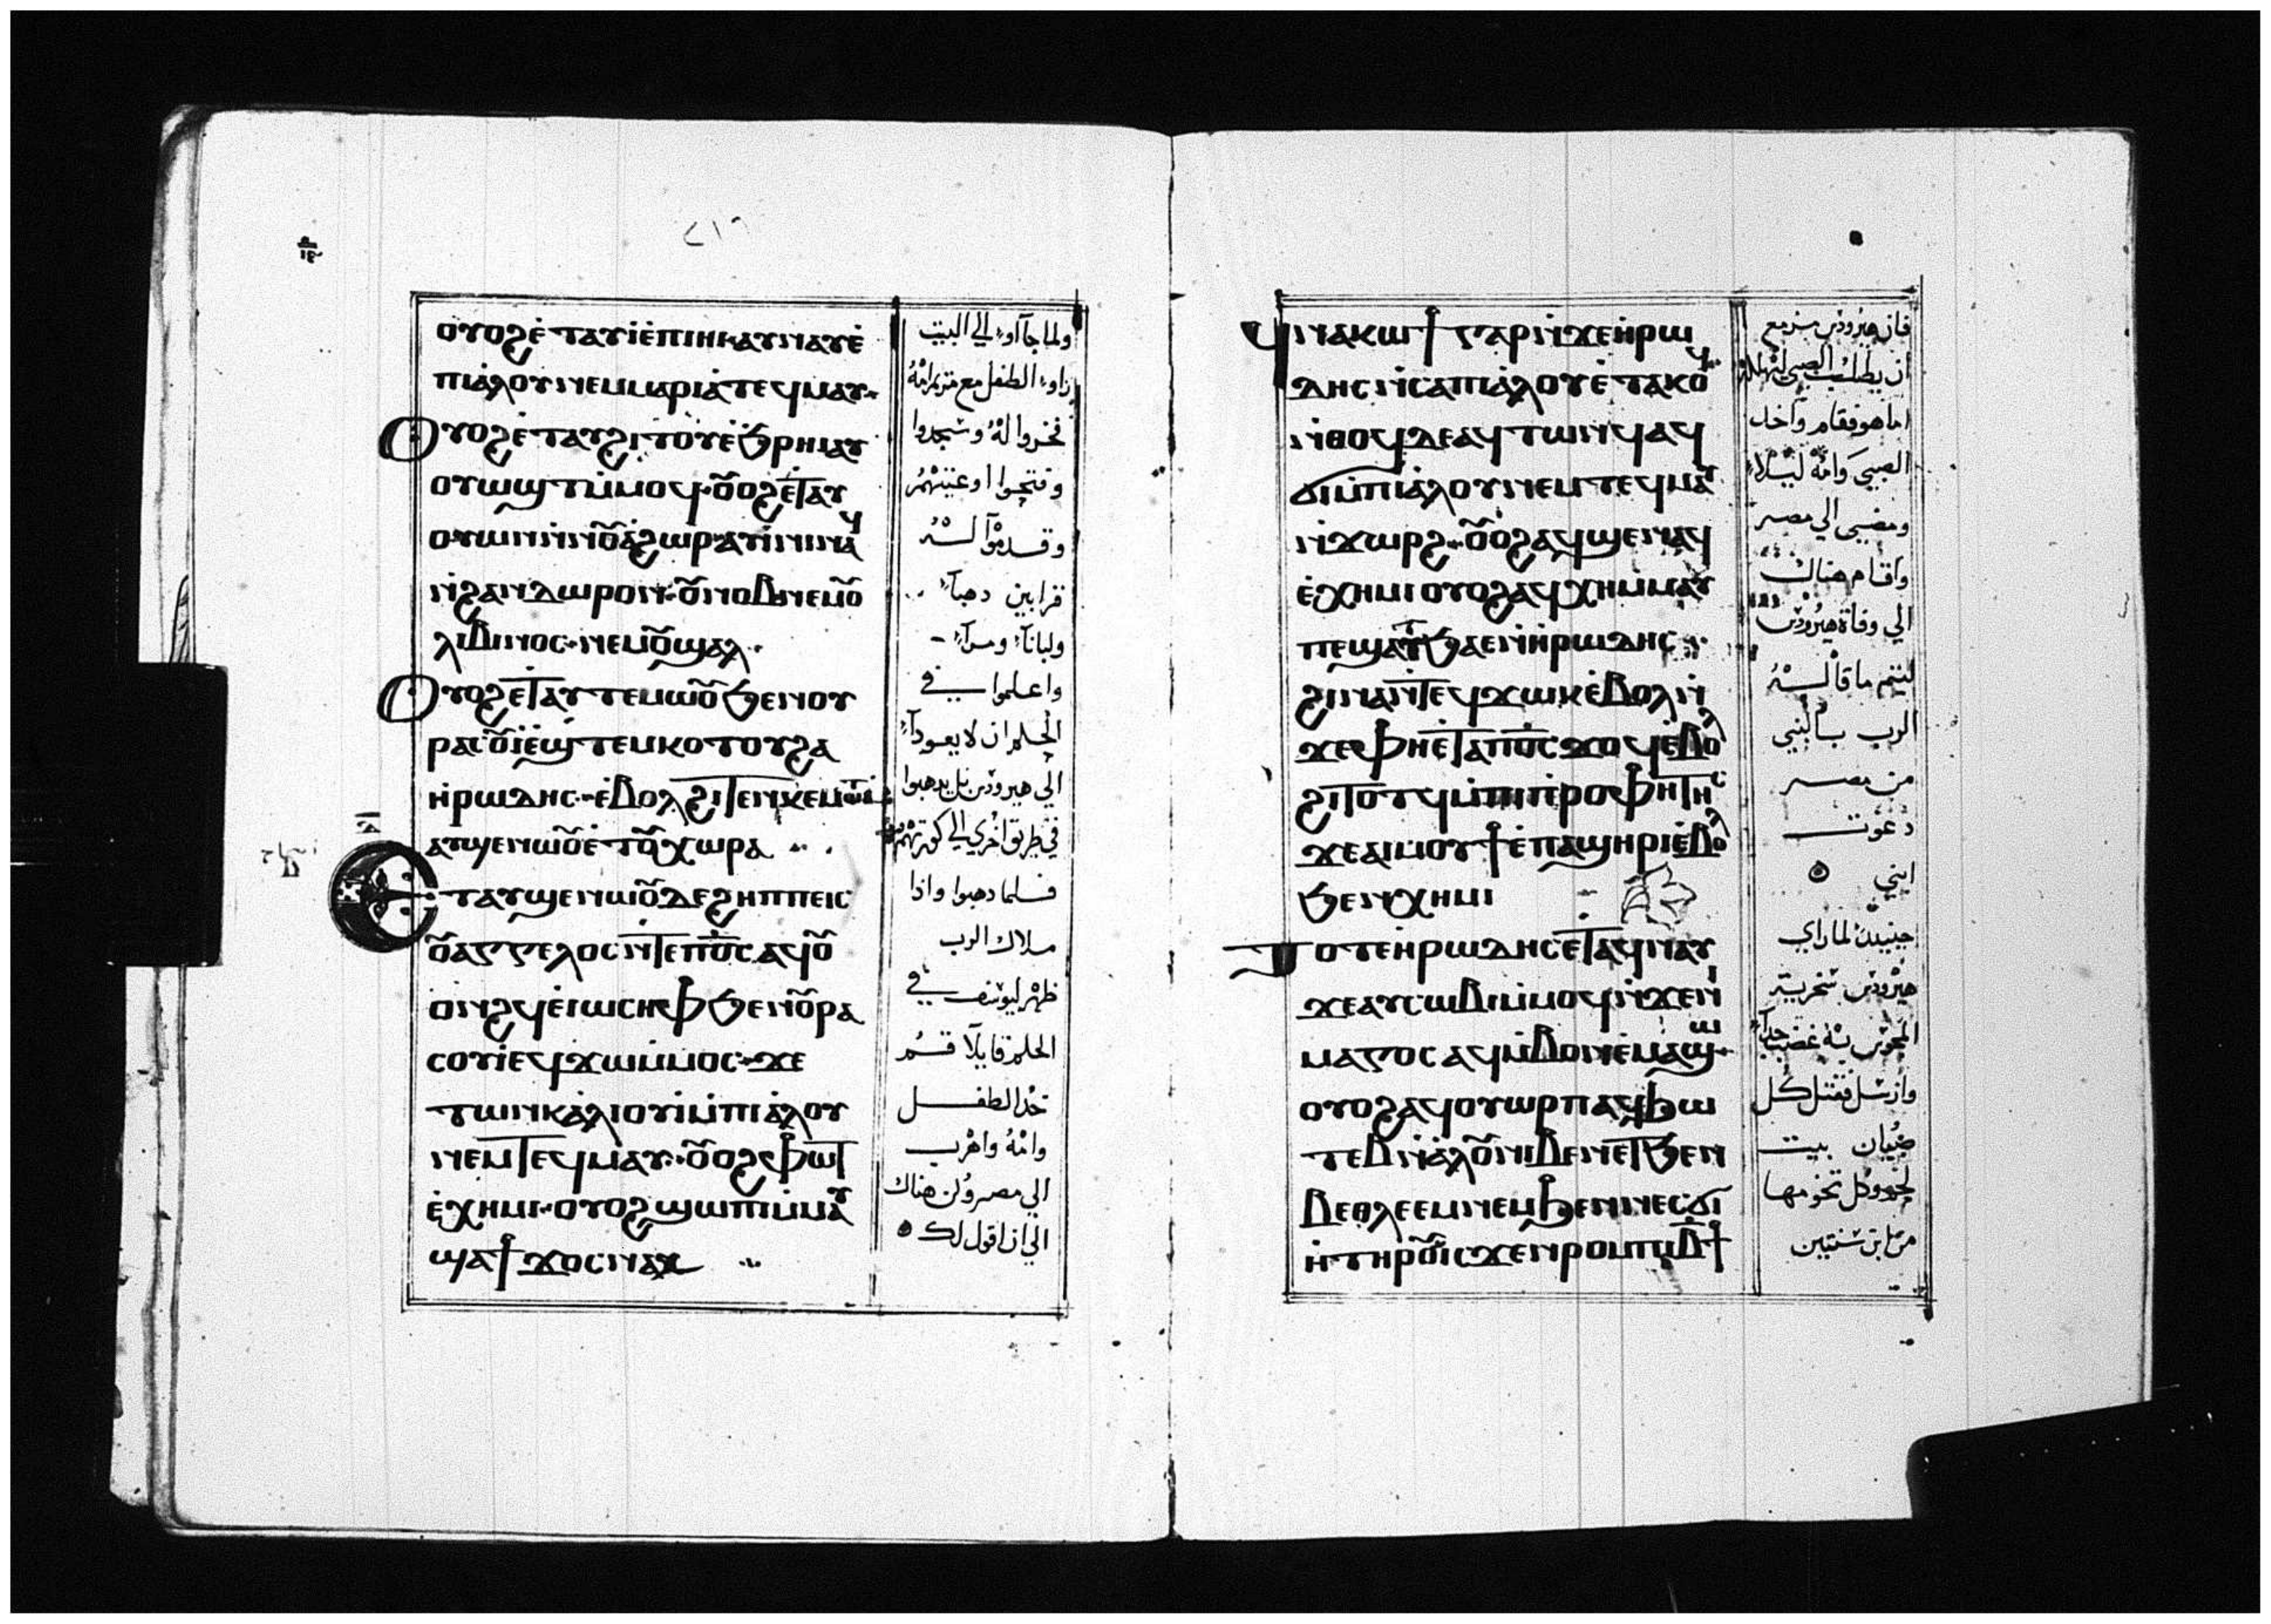 ⲟⲩⲟϩ ⲉ̀ⲧⲁⲩⲓ̀ ⲉ̀ⲡⲓⲏⲓ ⲁⲩⲛⲁⲩ ⲉ̀
ⲡⲓⲁ̀ⲗⲟⲩ ⲛⲉⲙ ⲙⲁⲣⲓⲁ̀ ⲧⲉϥⲙⲁⲩ
ⲟⲩⲟϩ ⲉ̀ⲧⲁⲩϩⲓⲧⲟⲩ ⲉ̀ϧⲣⲏⲓ ⲁⲩ
ⲟⲩⲱϣⲧ ⲙ̀ⲙⲟϥ ⲟ̅ⲟϩ ⲉ̀ⲧⲁⲩ
ⲟⲩⲱⲛ ⲛ̀ⲛⲟ̅ⲁ̀ϩⲱⲣ ⲁⲩⲓ̀ⲛⲓ ⲛⲁϥ
ⲛ̀ϩⲁⲛⲇⲱⲣⲟⲛ ⲟ̅ⲛⲟⲩⲃ ⲛⲉⲙ ⲟ̅
ⲗⲓⲃⲁⲛⲟⲥ ⲛⲉⲙ ⲟ̅ϣⲁⲗ
ⲟⲩⲟϩ ⲉ̀ⲧⲁⲩⲧⲉⲙⲱⲟ̅ ϧⲉⲛ ⲟⲩ
ⲣⲁⲥⲟ̅ⲓ ⲉ̀ϣⲧⲉⲙⲕⲟⲧⲟⲩ ϩⲁ
ⲏ̀ⲣⲱⲇⲏⲥ ⲉ̀ⲃⲟⲗ ϩⲓⲧⲉⲛ ⲕⲉⲙⲱⲓⲧ
ⲁⲩϣⲉⲛⲱⲟ̅ ⲉ̀ⲧⲟ̅ⲭⲱⲣⲁ
ⲉⲧⲁⲩϣⲉⲛⲱⲟ̅ ⲇⲉ ϩⲏⲡⲡⲉ ⲓⲥ
ⲟ̅ⲁⲅⲅⲉⲗⲟⲥ ⲛ̀ⲧⲉ ⲡⲟ̅ⲥ̅ ⲁϥⲟ̅
ⲟⲛϩϥ ⲉ̀ⲓⲱⲥⲏⲫ ϧⲉⲛ ⲟ̅ⲣⲁ
ⲥⲟⲩⲓ̀ ⲉϥϫⲱ ⲙ̀ⲙⲟⲥ ϫⲉ
ⲧⲱⲛⲕ ⲁ̀ⲗⲓⲟⲩⲓ̀ ⲙ̀ⲡⲓⲁ̀ⲗⲟⲩ
ⲛⲉⲙ ⲧⲉϥⲙⲁⲩ ⲟ̅ⲟϩ ⲫⲱⲧ
ⲉ̀ⲭⲏⲙⲓ ⲟⲩⲟϩ ϣⲱⲡⲓ ⲙ̀ⲙⲁⲩ
ϣⲁϯϫⲟⲥ ⲛⲁⲕ
ولما جآاو الي البيت
راو الطفل مع مريم امه
فخروا له وسجدوا
وفتحوا اوعيتهم
وقدموا له
قرابين دهبآ
ولبانآ ومرآ
واعلموا في
الحلم ان لا يعودآ
الي هيرودس بل يدهبوا
في طريق اخري الي كورتهم
فلما دهبوا واذا
ملاك الرب
ظهر ليوسف في
الحلم قايلا قم
خد الطفل
وامه واهرب
الي مصر وكن هناك
الي ان اقول لك
ϥⲛⲁⲕⲱϯ ⲅⲁⲣ ⲛ̀ϫⲉ ⲏ̀ⲣⲱ
ⲇⲏⲥ ⲛ̀ⲥⲁ ⲡⲓⲁ̀ⲗⲟⲩ ⲉ̀ⲧⲁⲕⲟϥ
ⲛ̀ⲑⲟϥ ⲇⲉ ⲁϥⲧⲱⲛϥ ⲁϥ
ϭⲓ ⲙ̀ⲡⲓⲁ̀ⲗⲟⲩ ⲛⲉⲙ ⲧⲉϥⲙⲁⲩ
ⲛ̀ϫⲱⲣϩ ⲟ̅ⲟϩ ⲁϥϣⲉⲛⲁϥ
ⲉ̀ⲭⲏⲙⲓ ⲟⲩⲟϩ ⲁϥⲭⲏ ⲙ̀ⲙⲁⲩ
ⲡⲉ ϣⲁⲧϧⲁⲉ ⲛ̀ⲏ̀ⲣⲱⲇⲏⲥ
ϩⲓⲛⲁ ⲛ̀ⲧⲉϥϫⲱⲕ ⲉ̀ⲃⲟⲗ ⲛ̀
ϫⲉ ⲫⲏ ⲉ̀ⲧⲁ ⲡⲟ̅ⲥ̅ ϫⲟϥ ⲉ̀ⲃⲟⲗ
ϩⲓⲧⲟⲧϥ ⲙ̀ⲡⲓⲡⲣⲟⲫⲏⲧⲏⲥ
ϫⲉ ⲁⲓⲙⲟⲩϯ ⲉ̀ⲡⲁϣⲏⲣⲓ ⲉ̀ⲃⲟⲗ
ϧⲉⲛ ⲭⲏⲙⲓ
ⲧⲟⲧⲉ ⲏ̀ⲣⲱⲇⲏⲥ ⲉⲧⲁϥⲛⲁⲩ
ϫⲉ ⲁⲩⲥⲱⲃⲓ ⲙ̀ⲙⲟϥ ⲛ̀ϫⲉ ⲛⲓ
ⲙⲁⲅⲟⲥ ⲁϥⲙ̀ⲃⲟⲛ ⲉ̀ⲙⲁϣⲱ
ⲟⲩⲟϩ ⲁϥⲟⲩⲱⲣⲡ ⲁϥϧⲱ
ⲧⲉⲃ ⲛ̀ⲁ̀ⲗⲟ̅ ⲛⲓⲃⲉⲛ ⲉⲧϧⲉⲛ
ⲃⲉⲑⲗⲉⲉⲙ ⲛⲉⲙ ϧⲉⲛ ⲛⲉⲥϭⲓ
ⲏ̀ ⲧⲏⲣⲟ̅ ⲓⲥϫⲉⲛ ⲣⲟⲙⲡⲓ ⲃ̅ϯ
فان هيرودس مزمع
ان يطلب الصبي ليهلكه
اما هو فقام واخد
الصبي وامه ليلا
ومضي الي مصر
واقام هناك
الي وفاة هيرودس
ليتم ما قاله
الرب بالنبي
من مصر
دعوت
ابني
حينيد لما راي
هيرودس سخرية
المجوس به غضب جدآ
وارسل فقتل كل
صبيان بيت
لحم وكل تخومها
من ابن سنتين